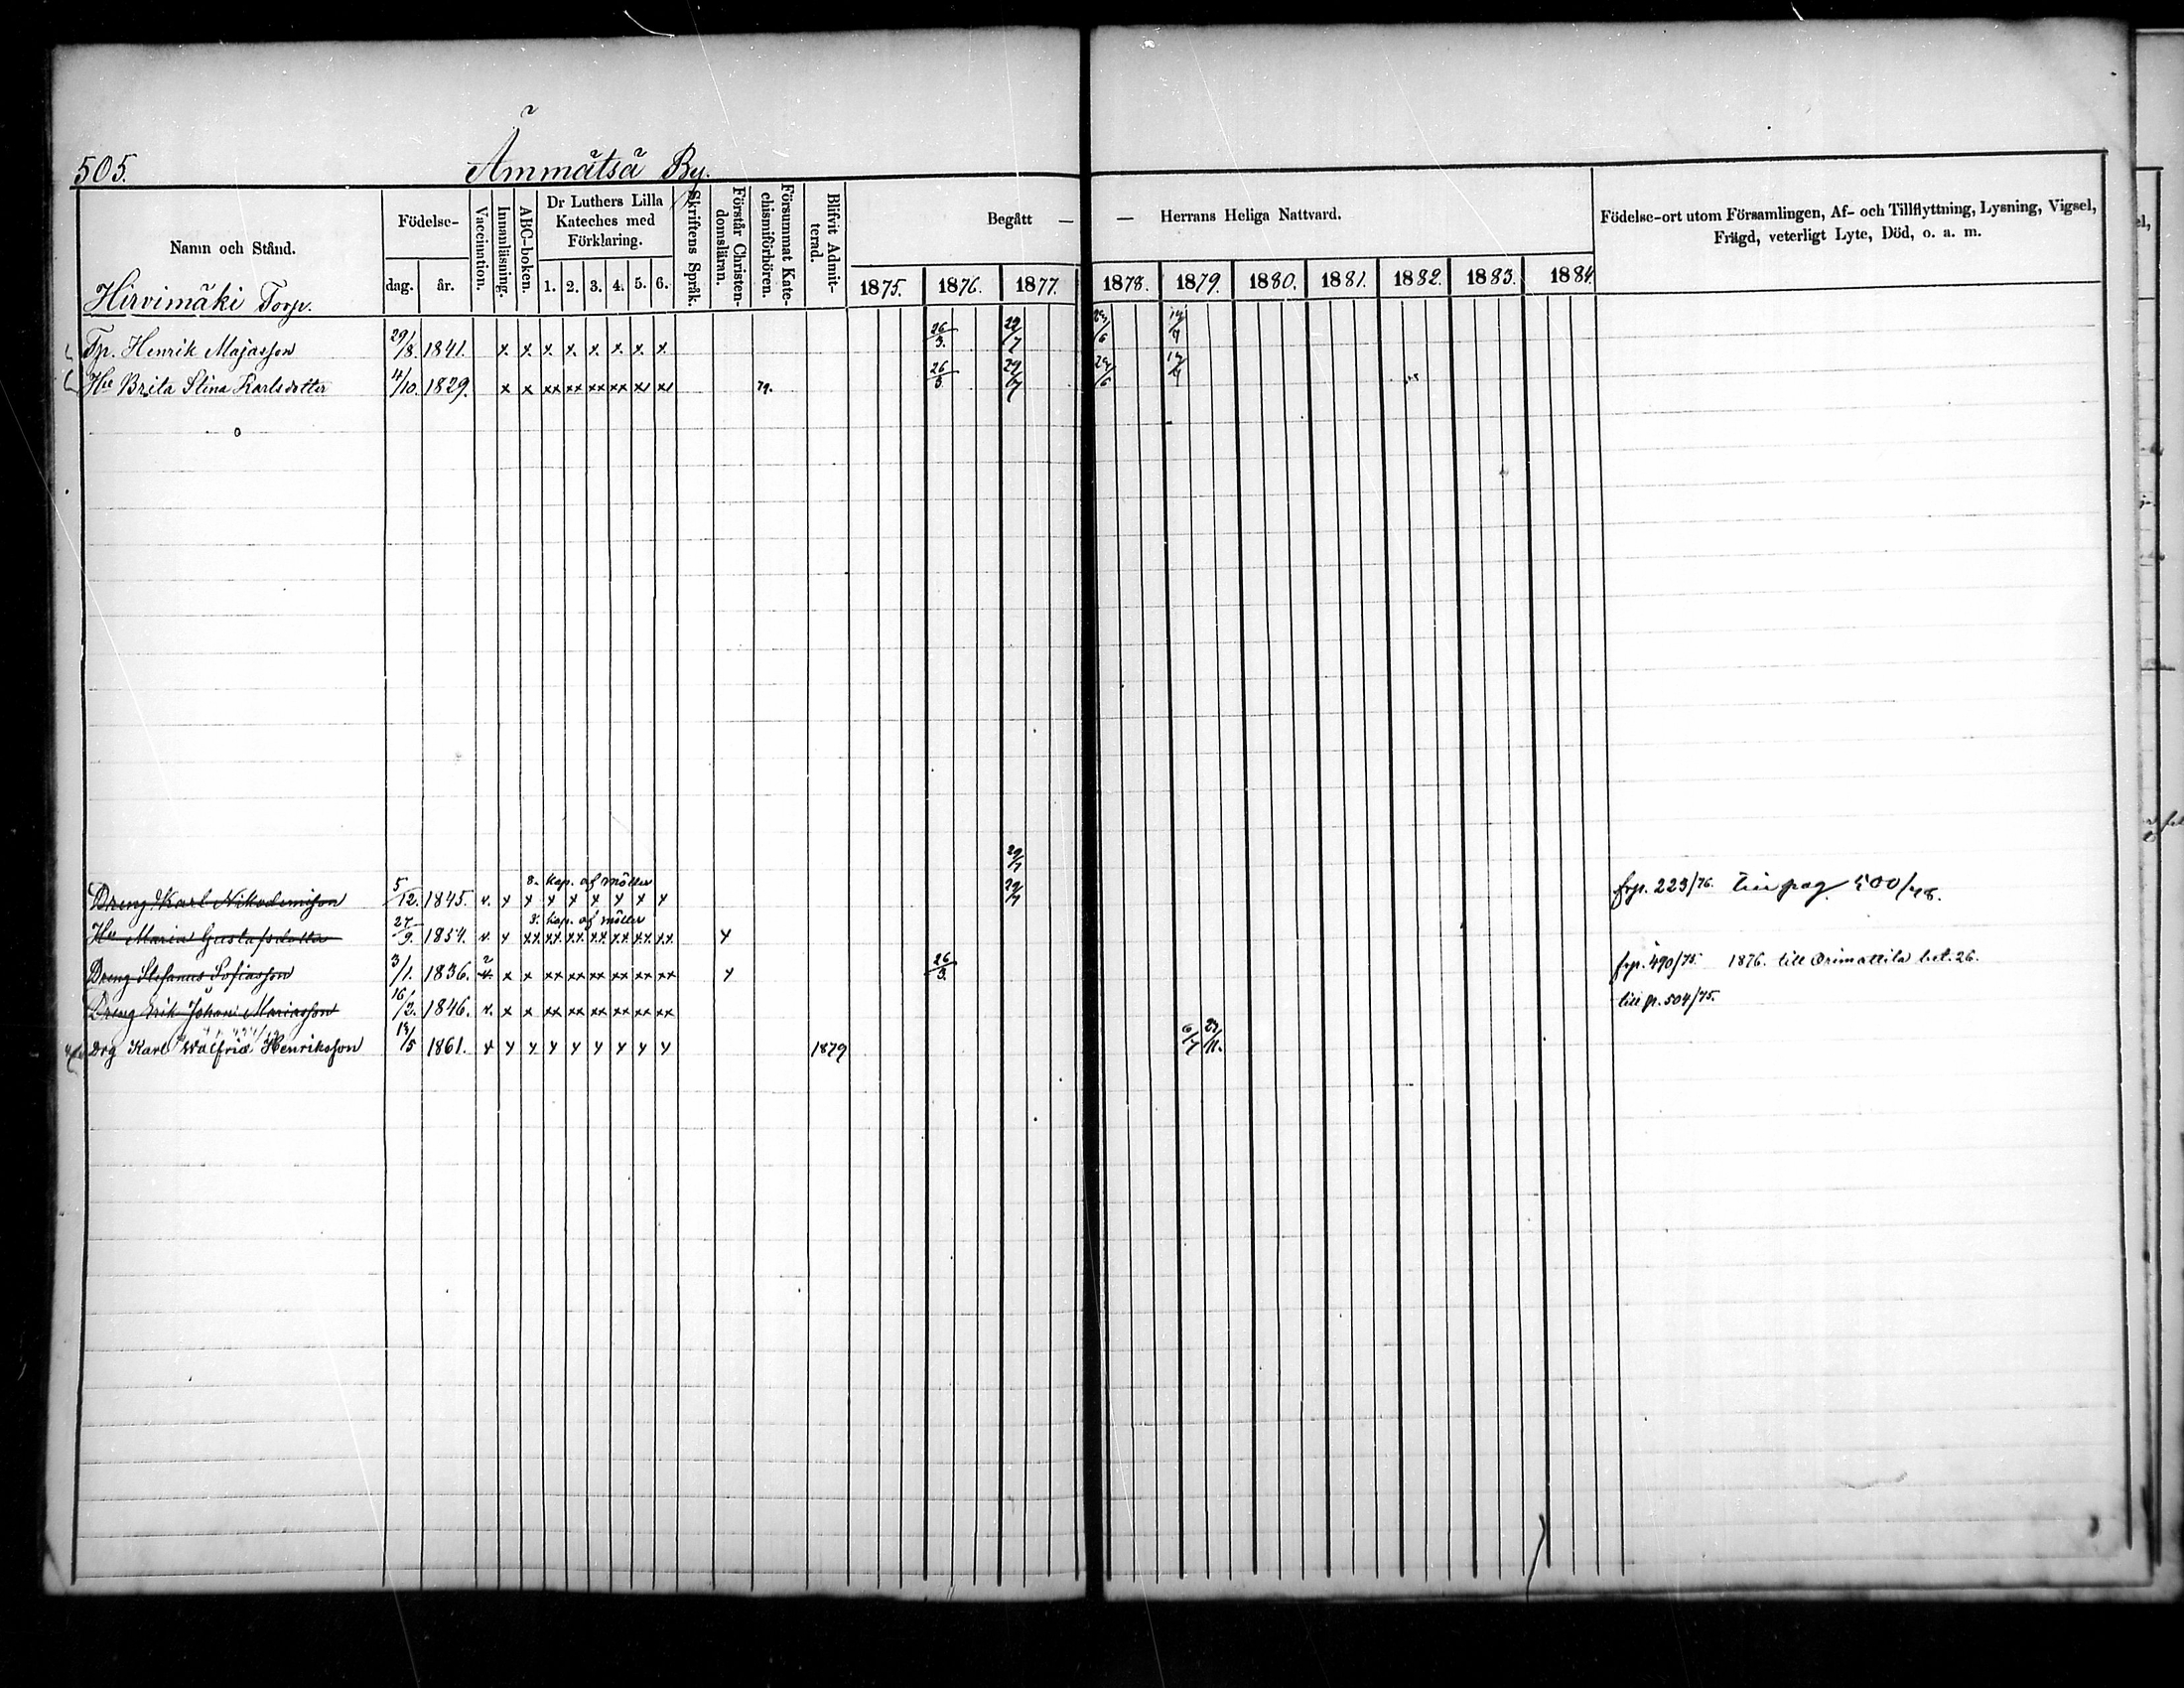 505. Ämmätsä By.
Namn och Stånd. Födelse- dag. år. Vaccination. Innanläsning. ABC-boken. Dr Luthers Lilla Kateches med Förklaring. 1. 2. 3. 4. 5. 6. Skriftens Språk. Förstår Christen-domsläran. Försummat Kate-chismiförhören. Blifvit Admit-terad. Begått — — Herrans Heliga Nattvard. Födelse-ort utom Församlingen, Af- och Tillflyttning, Lysning, Vigsel, Frägd, veterligt Lyte, Död, o. a. m.
1875. 1876. 1877. 1878. 1879. 1880. 1881. 1882. 1883. 1884.
Hirvimäki Torp.
Tp. Henrik Majasson 29/8. 1841. x x x x x x x x 26/3.
Hu Brita Stina Karlsdotter 4/10. 1829. x x xx xx xx xx x x 79. 26/3.
8. kap. af möller
Dreng Karl Nikodemisson 5/12. 1845. v. x x x x x x x x frp. 223/76. till pag. 500/78.
3. kap. af möller
Hu Maria Gustafsdotter 27/9. 1854. v. x xx xx xx xx xx xx xx x
Dreng Stefanus Sofiasson 3/1. 1836. x x xx xx xx xx xx xx x 26/3. frp. 490/75. 1876. till Orimattila bet. 26.
Dreng Erik Johan Mariasson 16/2. 1846. v. x x xx xx xx xx xx xx till p. 504/75.
Drg Karl Walfrid Henriksson 1861. x x x x x x x x x 1879